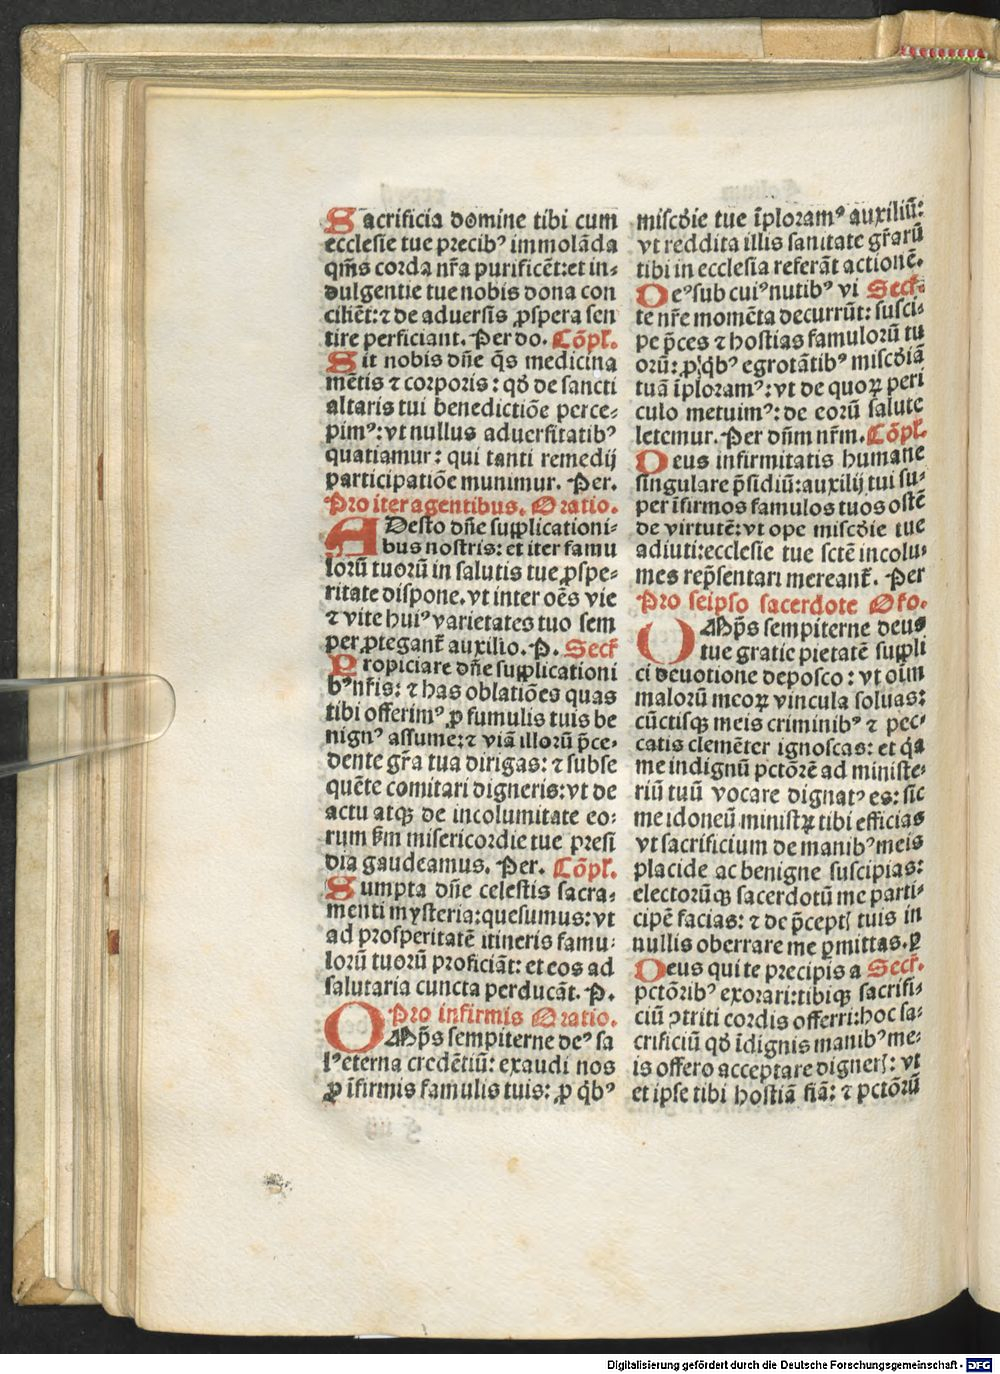 Sacrificia domine tibi cum
ecclesie tue precibꝰ immolāda
qm̄s corda nr̄a purificēt: et in⸗
dulgentie tue nobis dona con
ciliēt: ⁊ de aduersis ꝓspera sen
tire perficiant. Per do. Cōpl̄.
Sit nobis dn̄e q̄s medicina
mētis ⁊ corporis: qd̓ de sancti
altaris tui benedictiōe perce⸗
pimꝰ: vt nullus aduersitatibꝰ
quatiamur: qui tanti remedij
participatiōe munimur. Per.
Pro iter agentibus. Oratio.
ADesto dn̄e supplicationi⸗
bus nostris: et iter famu
lorū tuorū in salutis tue ꝓspe⸗
ritate dispone. vt inter oēs vie
⁊ vite huiꝰ varietates tuo sem
per ꝓtegant̄ auxilio. P. Secr̄
Propiciare dn̄e supplicationi
bꝰ nr̄is: ⁊ has oblatiōes quas
tibi offerimꝰ ꝓ fumulis tuis be
nignꝰ assume: ⁊ viā illorū p̄ce⸗
dente gr̄a tua dirigas: ⁊ subse
quēte comitari digneris: vt de
actu atqꝫ de incolumitate eo⸗
rum sm̄ misericordie tue presi
dia gaudeamus. Per. Cōpl̄.
Sumpta dn̄e celestis sacra⸗
menti mysteria: quesumus: vt
ad prosperitatē itineris famu⸗
lorū tuorū proficiāt: et eos ad
salutaria cuncta perducāt. P.
Pro infirmis Oratio.
OMp̄s sempiterne deꝰ sa
lꝰ eterna credētiū: exaudi nos
ꝓ īfirmis famulis tuis: ꝓ qb̓ꝰ
misc̓die tue īploramꝰ auxiliū:
vt reddita illis sanitate gr̄arū
tibi in ecclesia referāt actionē.
Deꝰ sub cuiꝰ nutibꝰ vi Secr̄
te nr̄e momēta decurrūt: susci⸗
pe p̄ces ⁊ hostias famulorū tu
orū: ꝓ qb̓ꝰ egrotātibꝰ misc̓diā
tuā īploramꝰ: vt de quoꝝ peri
culo metuimꝰ: de eorū salute
letemur. Per dn̄m nr̄m. Cōpl̄.
Deus infirmitatis humane
singulare p̄sidiū: auxilij tui su⸗
per īfirmos famulos tuos ostē
de virtutē: vt ope misc̓die tue
adiuti: ecclesie tue sctē incolu⸗
mes rep̄sentari mereant̄. Per
Pro seipso sacerdote Oro.
OMp̄s sempiterne deus
tue gratie pietatē suppli
ci deuotione deposco: vt oīm
malorū meoꝝ vincula soluas:
cūctisqꝫ meis criminibꝰ ⁊ pec⸗
catis clemēter ignoscas: et q̓a
me indignū pctōrē ad ministe⸗
riū tuū vocare dignatꝰ es: sic
me idoneū ministꝝ tibi efficias
vt sacrificium de manibꝰ meis
placide ac benigne suscipias:
electorūqꝫ sacerdotū me parti⸗
cipē facias: ⁊ de p̄ceptꝭ tuis in
nullis oberrare me ꝑmittas. ꝑ
Deus qui te precipis a Secr̄.
pctōribꝰ exorari: tibiqꝫ sacrifi⸗
ciū ꝯtriti cordis offerri: hoc sa⸗
crificiū qd̓ īdignis manibꝰ me⸗
is offero acceptare dignerꝭ: vt
et ipse tibi hostiā fiā: ⁊ pctōrū
Digitalisierung gefördert durch die Deutsche Forschungsgemeinschaft - DFG